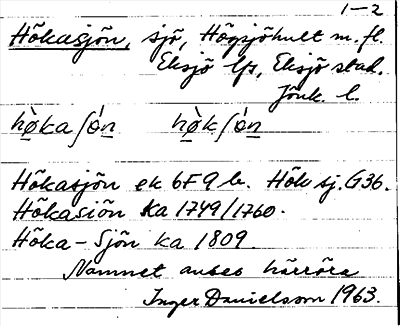 1-2
Hökasjön, sjö, Högsjöhult m.fl.
Eksjö lfs, Eksjö stad.
Jönk. l.
hø̀kaʃón hø̀kʃón
Hökasjön ek 6F9b. Hök sj. G36.
Hökasiön Ka 1749/1760.
Höka-Sjön ka 1809
Namnet anses härröra
Inger Danielsson 1963.